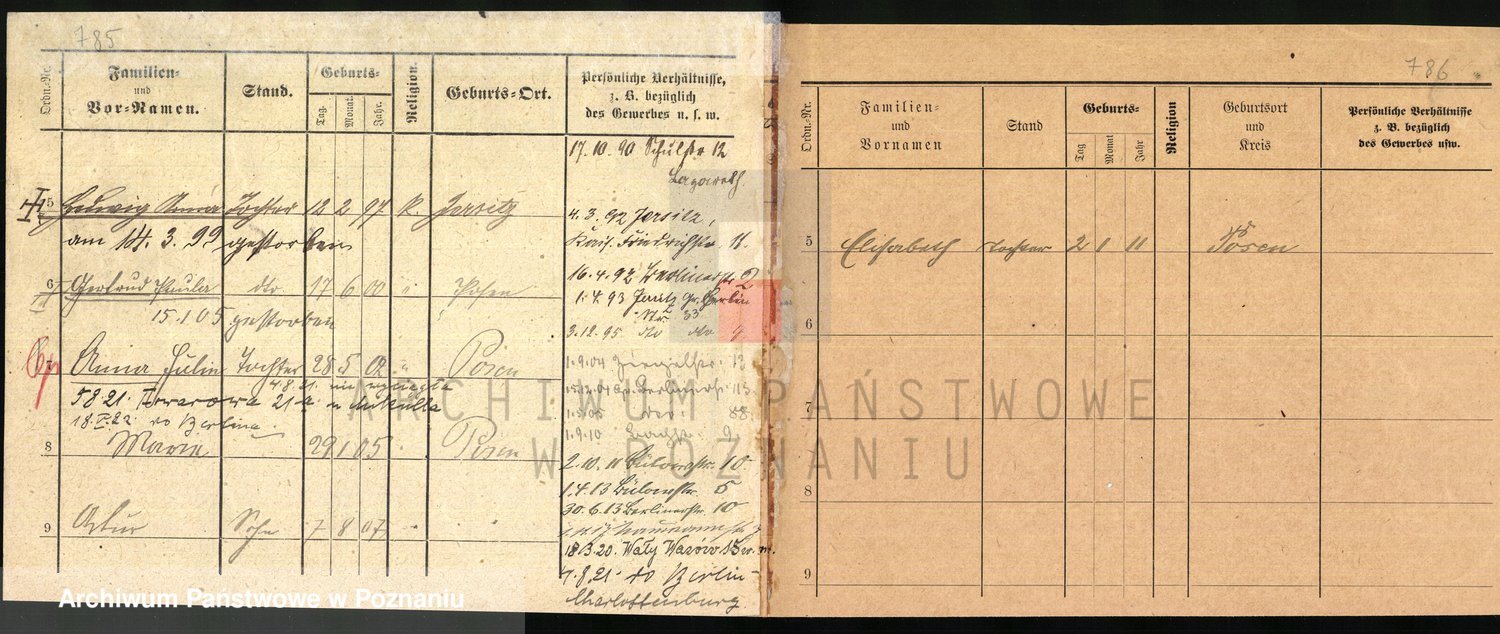 785
Ordn.-Nr.
Familien-
und
Vor-Namen.
Stand.
Geburts-
Tag.
Monat
Jahr.
Religion.
Geburts-Ort.
Persönliche Verhältnisse,
z. B. bezüglich
des Gewerbes u. s. w.
17.10.90 Schulstr 12
Lazareth.
5 Hedwig Anna Tochter 12 2 97 k. Jersitz
am 14. 3. 99 gestorben
4. 3. 92 Jersitz,
Kais. Friedrichstr. 11.
6 Gertrud Paula dto. 17 6 00 " Posen
15.1.05 gestorben
16.4.92 Berlinerstr 2
1.4.93 Gr. Berlin
Str 33
3.12.95 dto dto 9
7 Anna Julie Tochter 28 5 02 " Posen
5 8 21. 21a
18.V.22 do Berlina
1.9.04 12
Berlinerstr. 113
1.5.05 dto. 88
1.9.10 9
8 Marie 29 1 05 " Posen
2.10.11 Bülowstr. 10
1.4.13 Bülowstr. 5
30.6.13 Berlinerstr. 10
9 Artur Sohn 7 8 07 " "
Naumannstr. 7
18.3.20. Wały Wazów 15
4.8.21. do Berlin-
Charlottenburg
786
Ordn.-Nr.
Familien-
und
Vornamen
Stand
Geburts-
Tag
Monat
Jahr
Religion
Geburtsort
und
Kreis
Persönliche Verhältnisse
z. B. bezüglich
des Gewerbes usw.
5 Elisabeth Tochter 2 1 11 Posen
6
7
8
9
ARCHIWUM PAŃSTWOWE
W POZNANIU
Archiwum Państwowe w Poznaniu